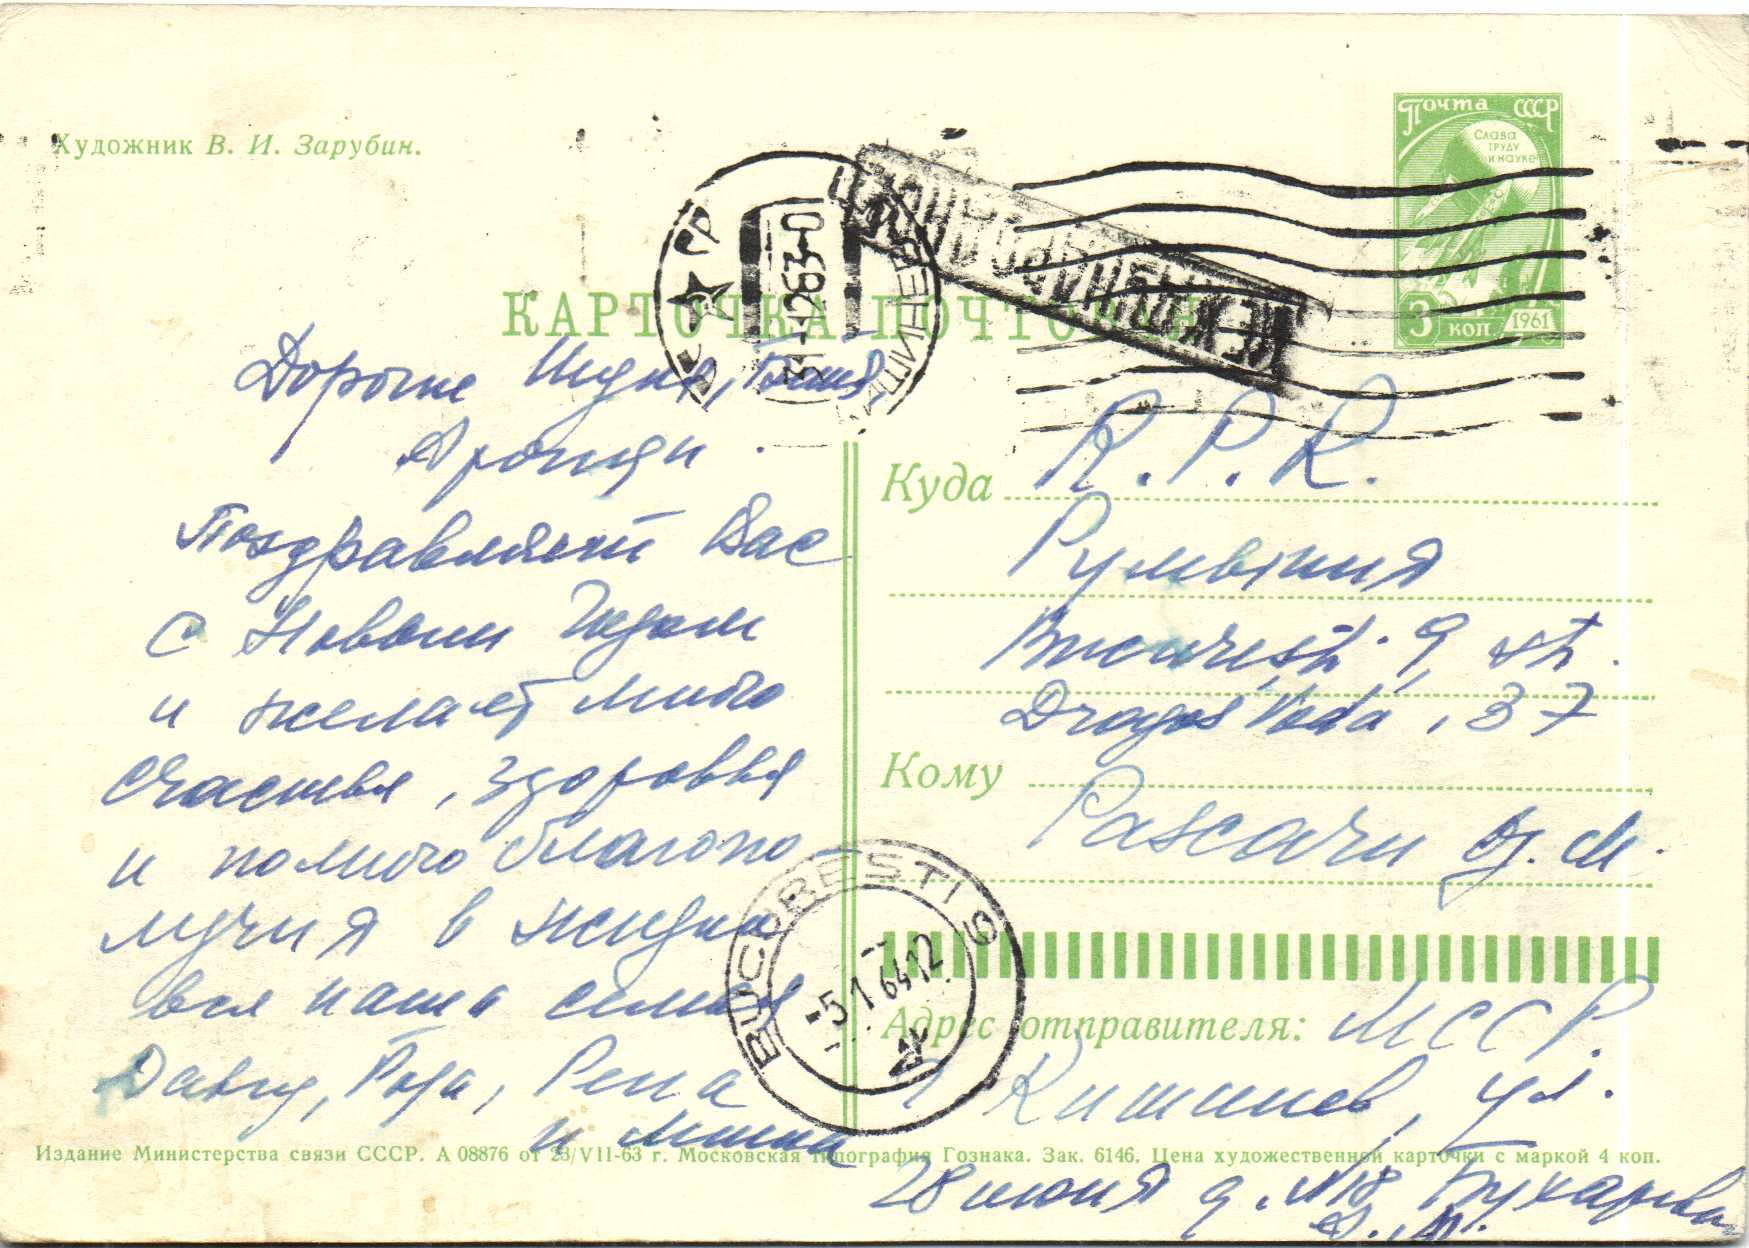 Художник В. И. Зарубин.
Почта СССР
Слава
труду
и науке
3 коп. 1961
КАРТОЧКА ПОЧТОВАЯ
МЕЖДУНАРОДНОЕ
КИШИНЕВ
31-12 63-0
Дорогие
Поздравляют Вас
с Новым Годом
и желает много
счастья, здоровья
и помного благопо-
лучия в жизни
вся наша семья
Давид, Роза, Рена
и Миша
Куда R.P.R.
Румыния
București 9, str.
Dragoș Vodă, 37
Кому
Pascaru
BUCUREȘTI 9
-5.1 64.12
Адрес отправителя: МССР.
г Кишинев, ул.
28 июня д. №18
Издание Министерства связи СССР. А 08876 от 23/VII-63 г. Московская типография Гознака. Зак. 6146. Цена художественной карточки с маркой 4 коп.